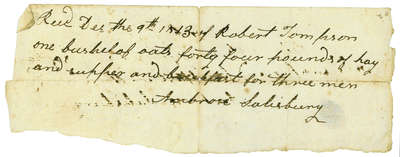 Recd Dec the 9th 1863 of Robert Tompson
one bushel of oats forty four pounds of hay
and supper and breakfast for three men
Ambrose Salisbury